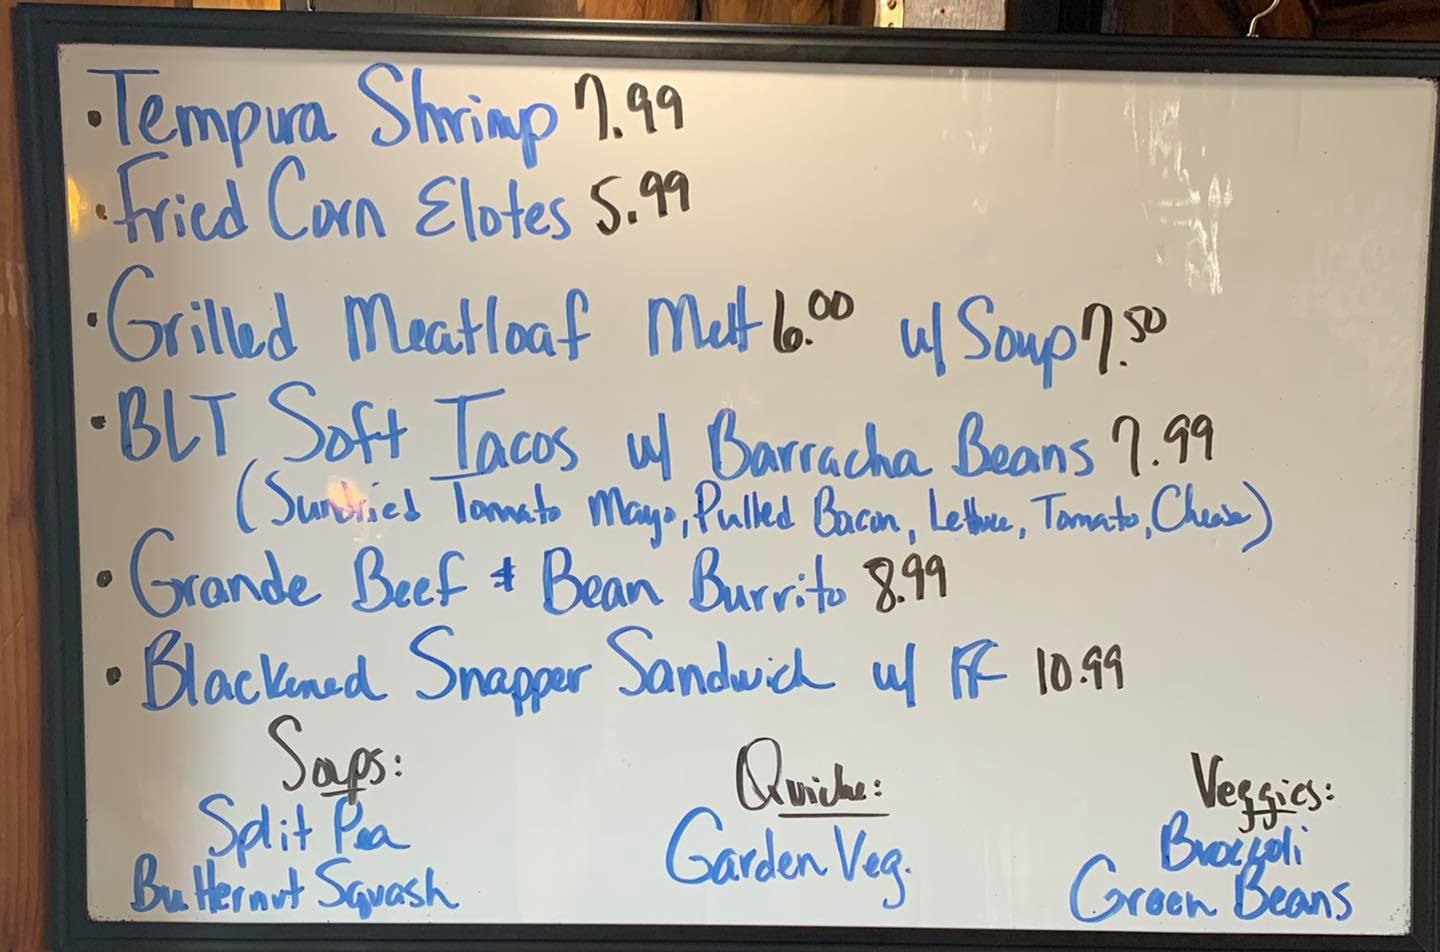 • Tempura Shrimp 7.99
• Fried Corn Elotes 5.99
• Grilled Meatloaf Melt 6.00 w/ Soup 7.50
• BLT Soft Tacos w/ Barracha Beans 7.99
(Sundried Tomato Mayo, Pulled Bacon, Lettuce, Tomato, Cheese)
• Grande Beef & Bean Burrito 8.99
• Blackened Snapper Sandwich w/ FF 10.99
Soups:
Split Pea
Butternut Squash
Quiche:
Garden Veg.
Veggies:
Broccoli
Green Beans